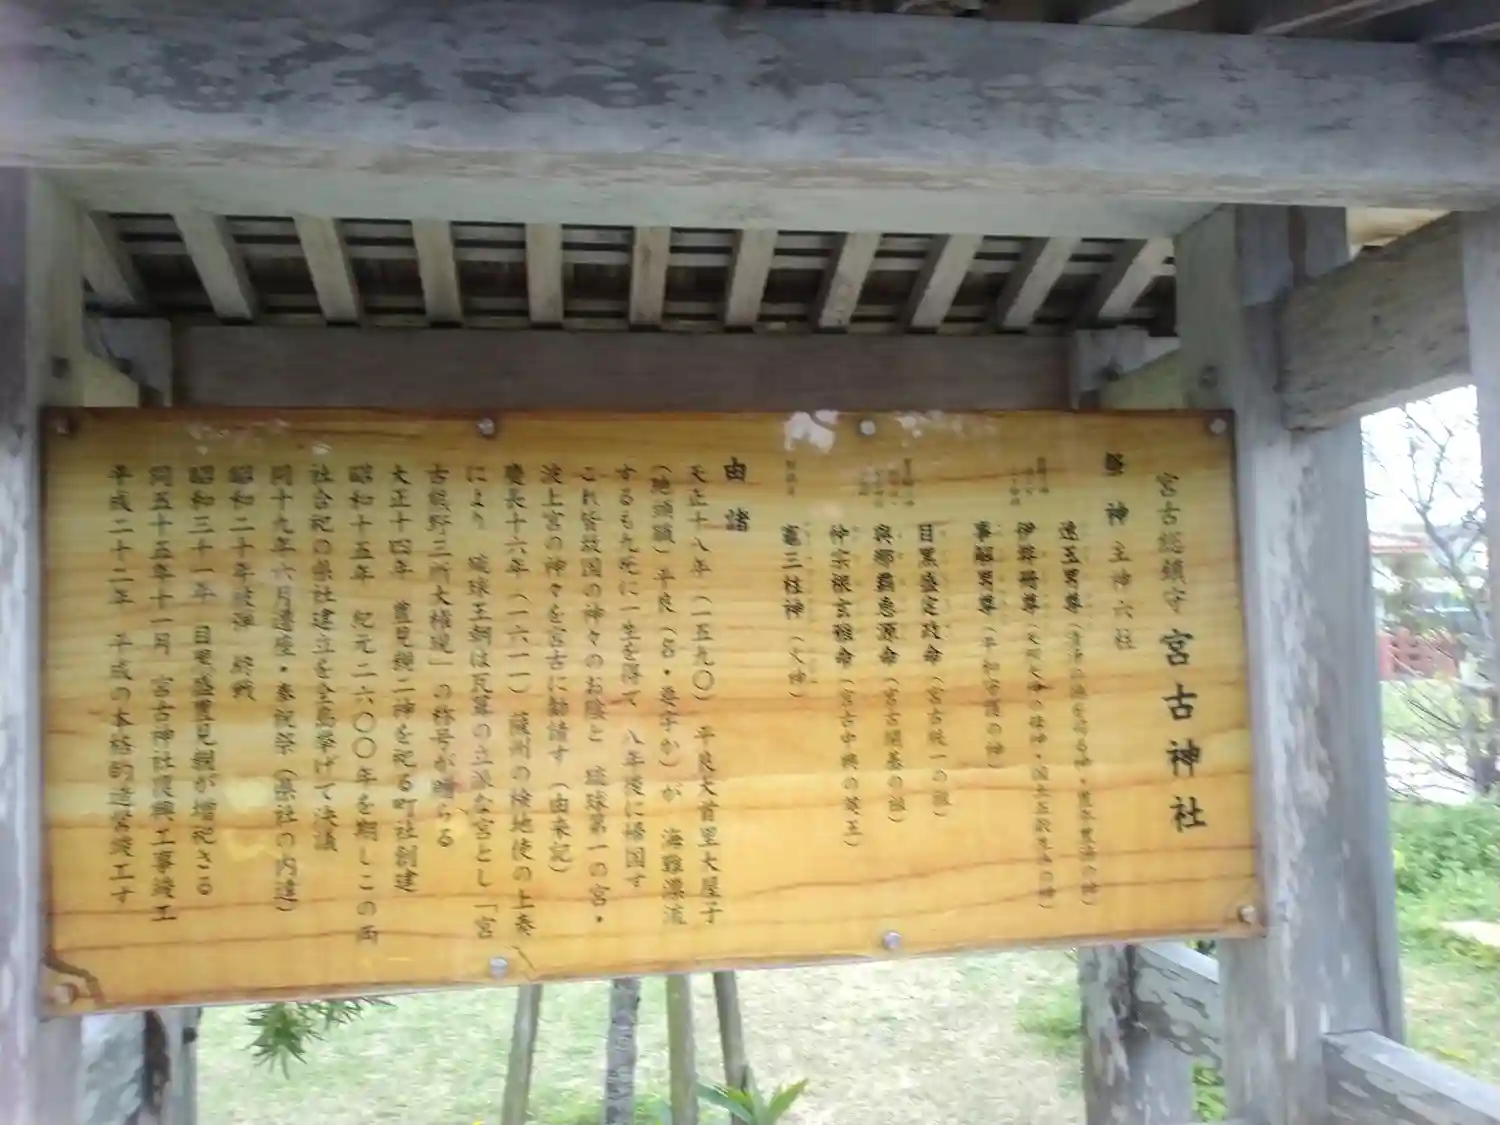 宮古総鎮守 宮古神社
祭神 主神六柱
速玉男尊
伊弉冊尊
事解男尊（平和守護の神）
目黒盛定政命（宮古統一の祖）
與那覇恵源命（宮古開基の祖）
仲宗根玄雅命（宮古中興の英主）
竈三柱神（火神）
由諸
天正十八年（一五九〇）平良大首里大屋子
平良（名・要字か）が 海難漂流
するも九死に一生を得て 八年後に帰国す
これ皆故国の神々のお陰と 琉球第一の宮・
波上宮の神々を宮古に勧請す（由来記）
慶長十六年（一六一一）薩州の検地使の上奏
により 琉球王朝は瓦葺の立派な宮とし「宮
古熊野三所大権現」の称号が贈らる
大正十四年 豊見親二神を祀る町社創建
昭和十五年 紀元二六〇〇年を期しこの両
社合祀の県社建立を全島挙げて決議
同十九年六月遷座・奉祝祭（県社の内達）
昭和二十年被弾 終戦
昭和三十一年 目黒盛豊見親が増祀さる
同五十五年十一月 宮古神社復興工事竣工
平成二十二年 平成の本格的造営竣工す